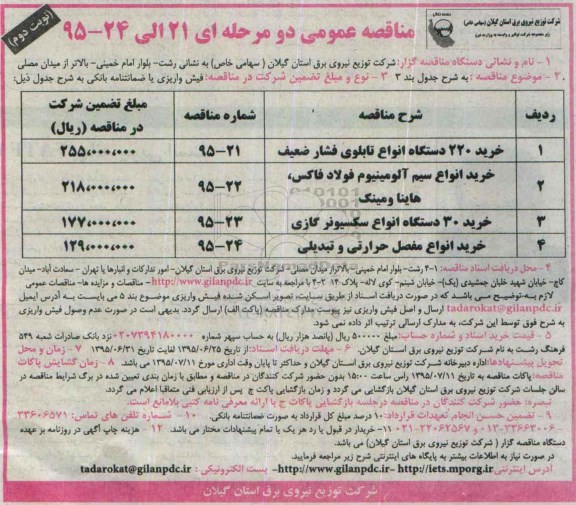 شرکت توزیع نیروی برق استان گیلان (سهامی خاص)
مناقصه عمومی دو مرحله ای ۲۱ الی ۲۴-۹۵
(نوبت دوم)
۱- نام و نشانی دستگاه مناقصه گزار: شرکت توزیع نیروی برق استان گیلان ( سهامی خاص) به نشانی رشت- بلوار امام خمینی- بالاتر از میدان مصلی
۲- موضوع مناقصه : به شرح جدول بند ۳ ۳- نوع و مبلغ تضمین شرکت در مناقصه: فیش واریزی یا ضمانتنامه بانکی به شرح جدول ذیل:
ردیف شرح مناقصه شماره مناقصه مبلغ تضمین شرکت در مناقصه (ریال)
۱ خرید ۲۲۰ دستگاه انواع تابلوی فشار ضعیف ۲۱-۹۵ ۲۵۵،۰۰۰،۰۰۰
۲ خرید انواع سیم آلومینیوم فولاد فاکس، هاینا ومینک ۲۲-۹۵ ۲۱۸،۰۰۰،۰۰۰
۳ خرید ۳۰ دستگاه انواع سکسیونر گازی ۲۳-۹۵ ۱۷۷،۰۰۰،۰۰۰
۴ خرید انواع مفصل حرارتی و تبدیلی ۲۴-۹۵ ۱۲۹،۰۰۰،۰۰۰
۴- محل دریافت اسناد مناقصه: ۱-۴ رشت- بلوار امام خمینی- بالاتراز میدان مصلی- شرکت توزیع نیروی برق استان گیلان-امور تدارکات و انبارها یا تهران - سعادت آباد- میدان
کاج- خیابان شهید خلبان جمشیدی (یک)- خیابان شبنم- کوی لاله- پلاک ۱۴ ۲-۴ با مراجعه به سایت http://www.gilanpdc.ir- مناقصات و مزایده ها- مناقصات عمومی
لازم به توضیح می باشد که در صورت دریافت اسناد از طریق سایت، تصویر اسکن شده فیش واریزی موضوع بند ۵ می بایست به آدرس ایمیل
tadarokat@gilanpdc.ir ارسال و اصل فیش واریزی نیز پیوست مدارک مناقصه (پاکت الف) ارسال گردد. بدیهی است در صورت عدم وصول فیش واریزی
به شرح فوق توسط این شرکت، به مدارک ارسالی ترتیب اثر داده نمی شود.
۵- قیمت خرید اسناد و شماره حساب: مبلغ ۵۰۰۰۰۰ ریال (پانصد هزار ریال) به حساب سپهر شماره ۰۲۰۷۳۹۴۱۸۰۰۰۰ نزد بانک صادرات شعبه ۵۴۹
فرهنگ رشت به نام شرکت توزیع نیروی برق استان گیلان. ۶- مهلت دریافت اسناد: از تاریخ ۱۳۹۵/۰۶/۲۵ لغایت تاریخ ۱۳۹۵/۰۶/۳۱ ۷- زمان و محل
تحویل پیشنهادها: اداره دبیرخانه شرکت توزیع نیروی برق استان گیلان و حداکثر تا پایان وقت اداری مورخ ۱۳۹۵/۰۷/۱۱ می باشد. ۸- زمان گشایش پاکات
مناقصه: پاکات مناقصه به تاریخ ۱۳۹۵/۰۷/۱۱ راس ساعت ۱۵:۰۰ بدون حضور شرکت کنندگان در مناقصه و مطابق با زمان بندی تعیین شده در برگ شرایط مناقصه در
سالن جلسات شرکت توزیع نیروی برق استان گیلان بازگشایی می گردد و زمان بازگشایی پاکت ج پس از ارزیابی فنی متعاقبا اعلام می گردد.
تبصره: حضور شرکت کنندگان در مناقصه درجلسه بازگشایی پاکات ج با ارائه معرفی نامه کتبی بلامانع است.
۹- تضمین حسن انجام تعهدات قرارداد: ۱۰ درصد مبلغ کل قرارداد به صورت ضمانتنامه بانکی. ۱۰- شماره تلفن های تماس: ۳۳۶۰۶۵۷۱
۰۱۳-۳۳۶۶۳۰۰۶ و ۰۲۱-۲۲۰۶۲۵۶۷ ۱۱- خریدار در قبول یا رد هر یک یا تمام پیشنهادات مختار می باشد. ۱۲- هزینه چاپ آگهی در روزنامه بر عهده
دستگاه مناقصه گزار ( شرکت توزیع نیروی برق استان گیلان) می باشد.
در صورت نیاز به اطلاعات بیشتر به پایگاه های اینترنتی شرح زیر مراجعه فرمایید.
آدرس اینترنتی http://www.gilanpdc.ir- http://iets.mporg.ir- پست الکترونیکی : tadarokat@gilanpdc.ir
شرکت توزیع نیروی برق استان گیلان